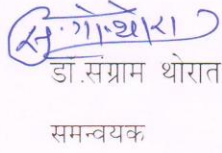 सं.गो.थोरात
डॉ.संग्राम थोरात
समन्वयक